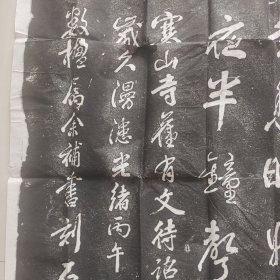 愁眠
夜半鐘聲
寒山寺舊有文待詔
歲久漫漶光緒丙午
數楹屬余補書刻石